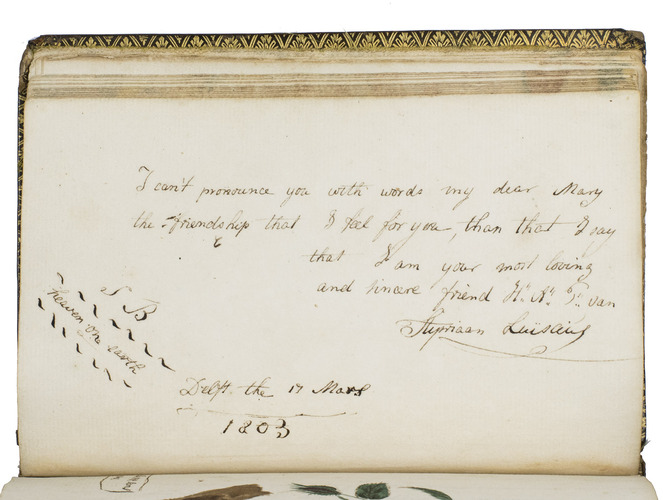 I can't pronounce you with words my dear Mary
the friendship that I feel for you, than that I say
that I am your most loving
and sincere friend H: A: van
Stipriaan Luiscius
S B
heaven on earth
Delft the 17 Mars
1803